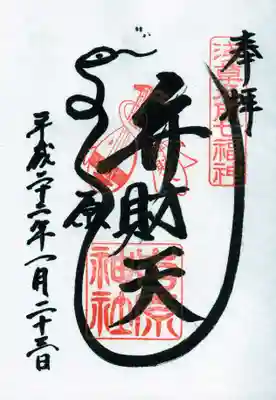 奉拝
浅草名所七福神
弁財天
原
吉原神社
平成二十一年一月二十三日